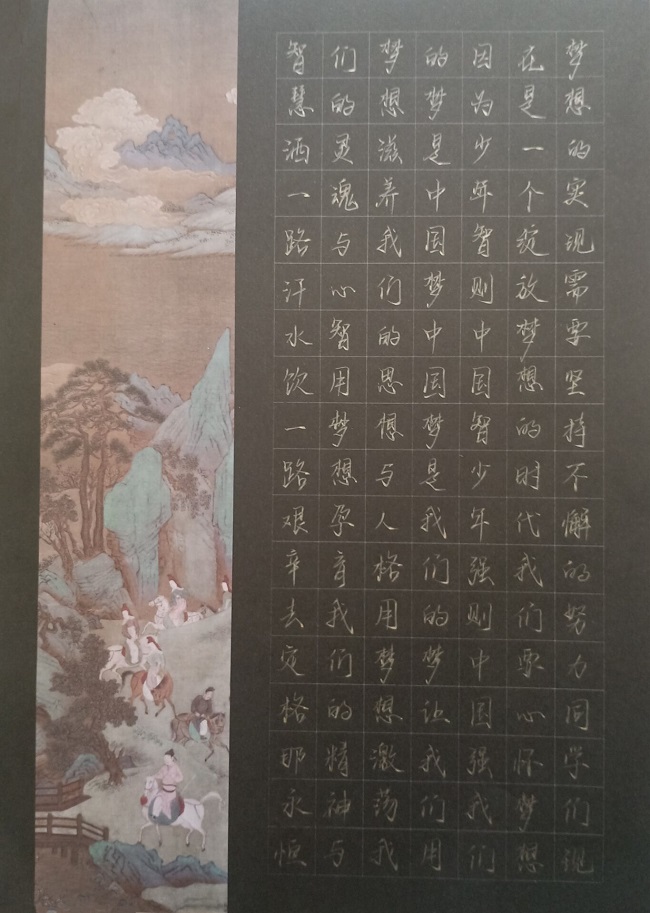 梦想的实现需要坚持不懈的努力同学们现
在是一个绽放梦想的时代我们要心怀梦想
因为少年智则中国智少年强则中国强我们
的梦是中国梦中国梦是我们的梦让我们用
梦想滋养我们的思想与人格用梦想激荡我
们的灵魂与心智用梦想孕育我们的精神与
智慧洒一路汗水饮一路艰辛去定格那永恒